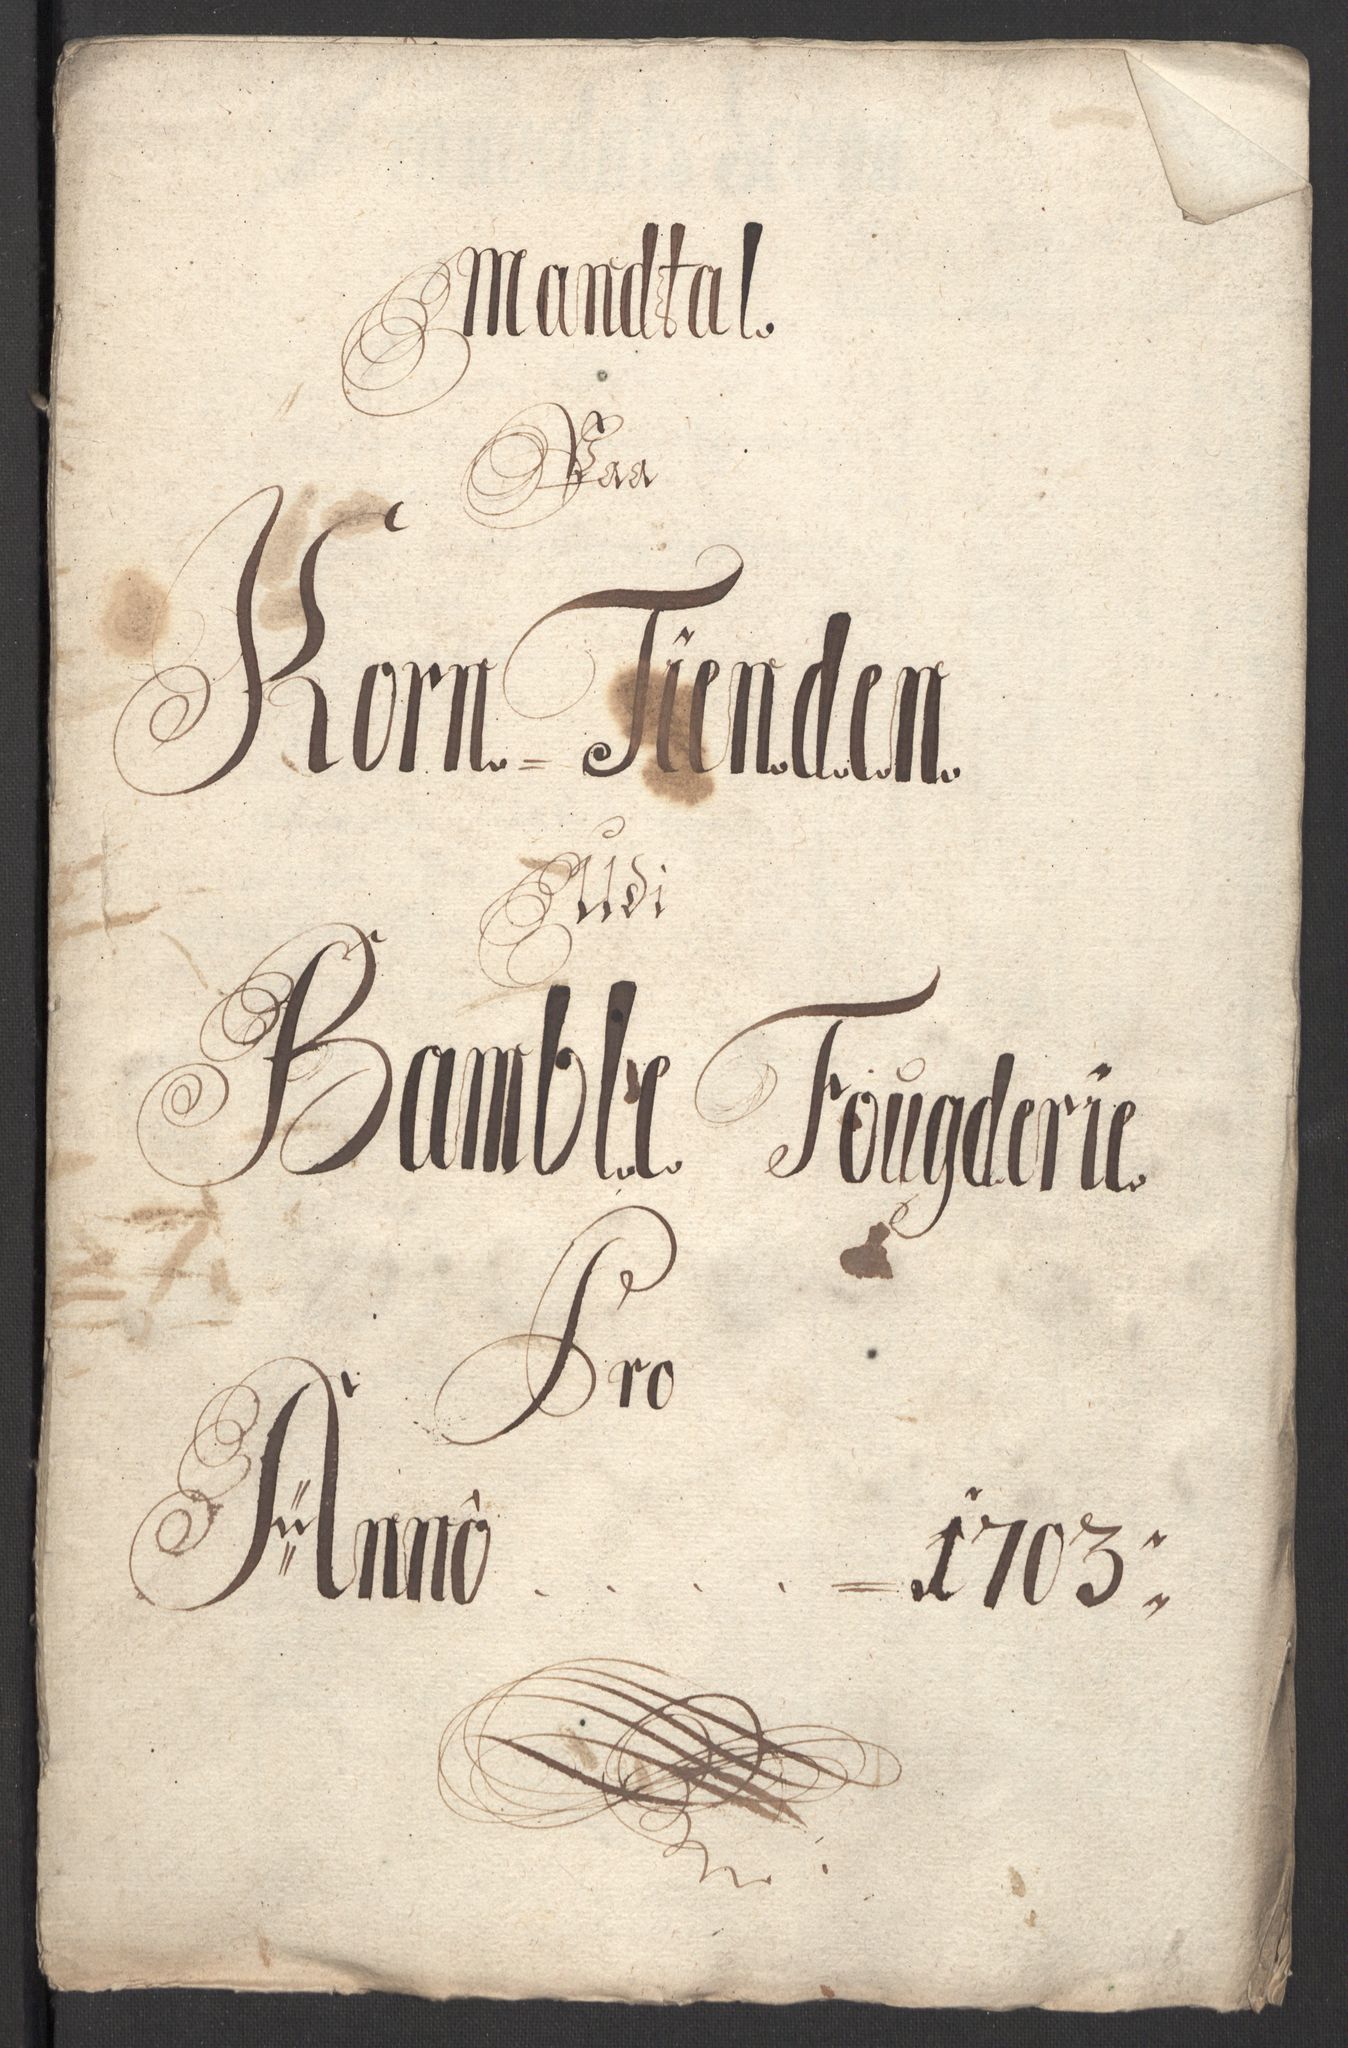 Mandtal.
Paa
Korn.=Tienden.
Udi
Bamble. Fougderie.
Pro
Anno . . . . = 1703: